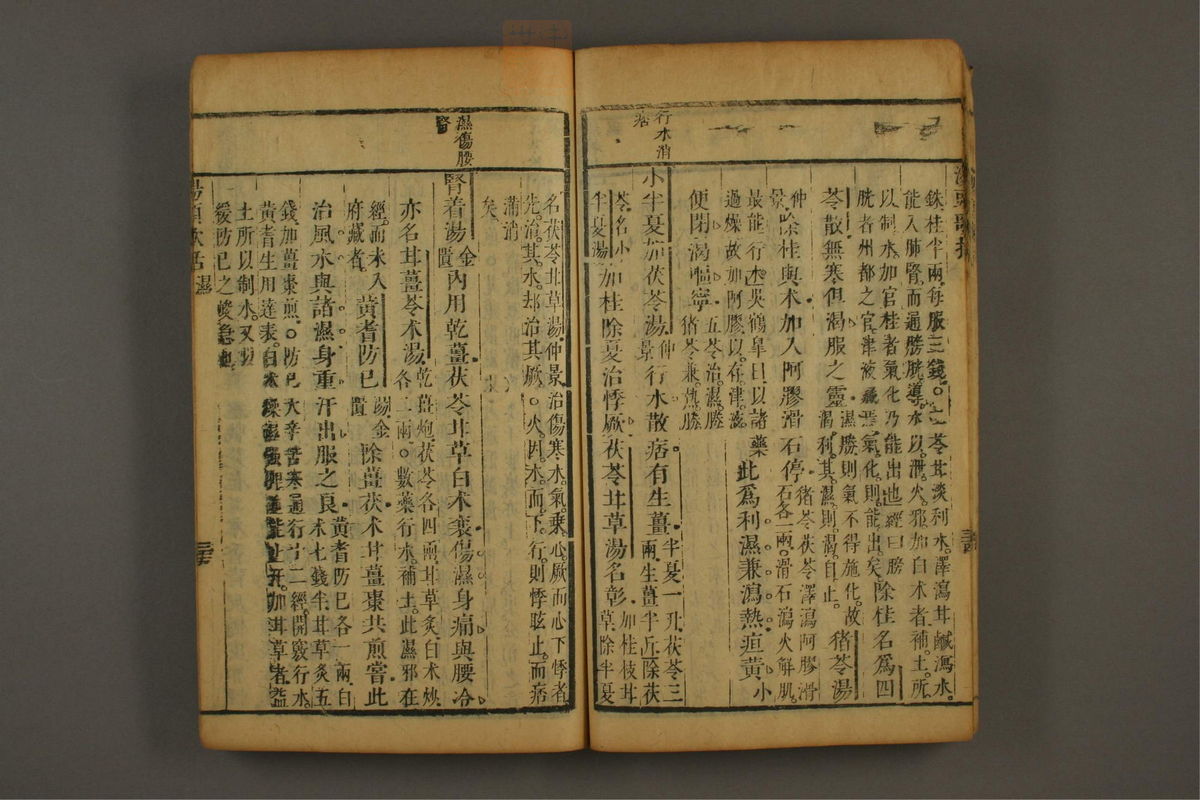 行水消
痞
銖桂半兩每服三錢
苓甘淡利水澤瀉甘鹹瀉水
能入肺腎而通膀胱導水以泄火邪加白术者補土所
以制水加官桂者氣化乃能出也經曰膀
胱者州都之官津液藏焉氣化則能出矣除桂名爲四
苓散無寒但渴服之靈濕勝則氣不得施化故
渴利其濕則渴自止猪苓湯
仲景除桂與术加入阿膠滑石停猪苓茯苓澤瀉阿膠滑
石各一兩滑石瀉火解肌
最能行水吳鶴皋曰以諸藥
過燥故加阿膠以存津液此爲利濕兼瀉熱疸黃小
便閉渴嘔寧五苓治濕勝
猪苓兼熱勝
小半夏加茯苓湯仲景行水散痞有生薑半夏一升茯苓三
兩生薑半斤除茯
苓名小
半夏湯加桂除夏治悸厥茯苓甘草湯名彰加桂枝甘
草除半夏
名茯苓甘草湯仲景治傷寒水氣乘心厥而心下悸者
先治其水却治其厥火因水而下行則悸眩止而痞
滿消
矣
濕傷腰
腎
腎着湯金
匱內用乾薑茯苓甘草白术裹傷濕身痛與腰冷
亦名甘薑苓术湯乾薑炮茯苓各四兩甘草炙白术炒
各二兩數藥行水補土此濕邪在
經而未入
府藏者黃耆防已湯金
匱除薑茯术甘薑棗共煎嘗此
治風水與諸濕身重汗出服之良黃耆防已各一兩白
术七錢半甘草炙五
錢加薑棗煎○防已大辛苦寒通行十二經開竅行水
黃耆生用達表白术燥濕強脾並能止汗加甘草者益
土所以制水又
緩防已之峻急也
湯頭歌括 濕